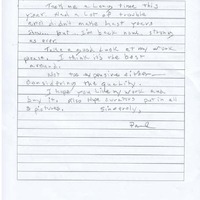 Took me a long time this
year. Had a lot of trouble
and didn't make last years
show. but I'm back now, strong
as ever.
Take a good look at my work
please. I think it's the best
around.
Not too expensive either
considering the quality.
I hope you like my work and
buy it. also hope curators put in all
3 pictures. Sincerely,
Paul